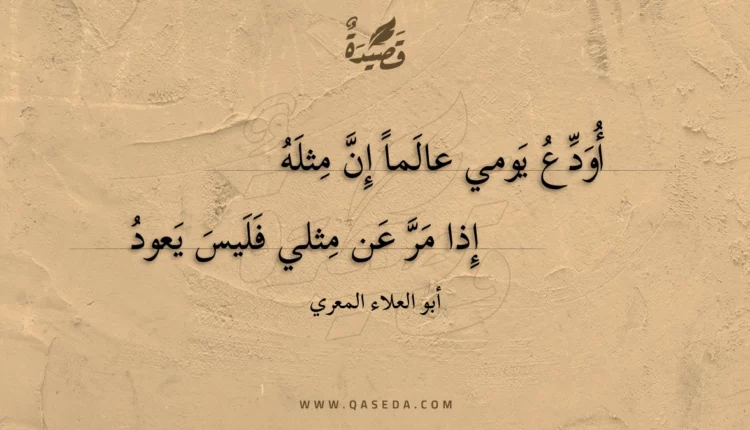 قَصِيدَةٌ
أُوَدِّعُ يَومي عالَماً إِنَّ مِثلَهُ
إِذا مَرَّ عَن مِثلي فَلَيسَ يَعودُ
أبو العلاء المعري
WWW.QASEDA.COM